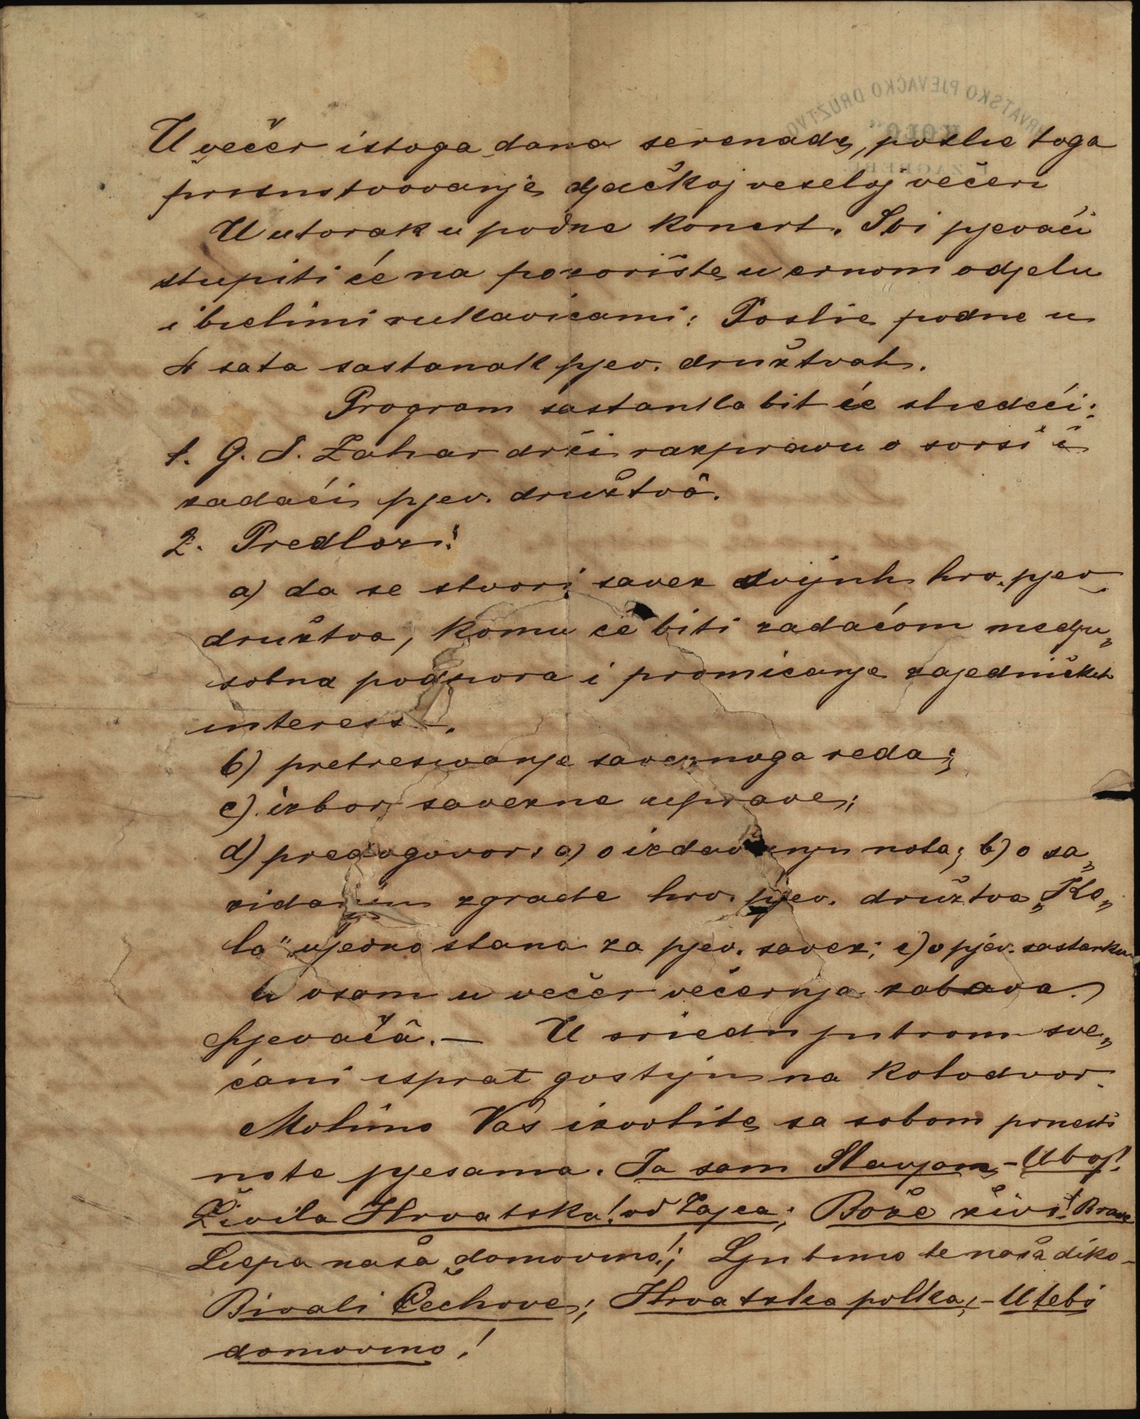 U večer istoga dana serenada, poslie toga
prisustvovanje djačkoj veseloj večeri
U utorak u podne koncert. Svi pjevači
stupiti će na pozorište u crnom odjelu
i bielimi rukavicami: Poslie podne u
4 sata sastanak pjev. družtvah.
Program sastanka bit će sliedeći:
1. G. S. Zahar drži razpravu o svrsi i
zadaći pjev. družtvâ.
2. Predlozi:
a) da se stvori savez svijuh hrv. pjev
družtva, komu će biti zadaćom medju„
sobna podpora i promicanje zajedničkih
interesa.
b) pretresivanje saveznoga reda;
c) izbor savezne uprave;
d) predogovor: a) o izdavanju nota; b) o sa„
zidanju zgrade hrv. pjev. družtva „Ko„
la" ujedno stana za pjev. savez; c) o pjev. sastanku
U osam u večer večernja zabava
pjevačâ. — U sriedu jutrom sve„
čani isprat gostiju na kolodvor.
Molimo Vas izvolite sa sobom ponesti
note pjesama. Ja sam Slavjan, - U boj!
Živila Hrvatska! od Zajca; Bože živi!
Liepa naša domovino!; Ljubimo te naša diko -
Bivali Čechove; Hrvatska polka; - U tebi
domovino!
HRVATSKO PJEVAČKO DRUŽTVO
„KOLO"
ZAGREB